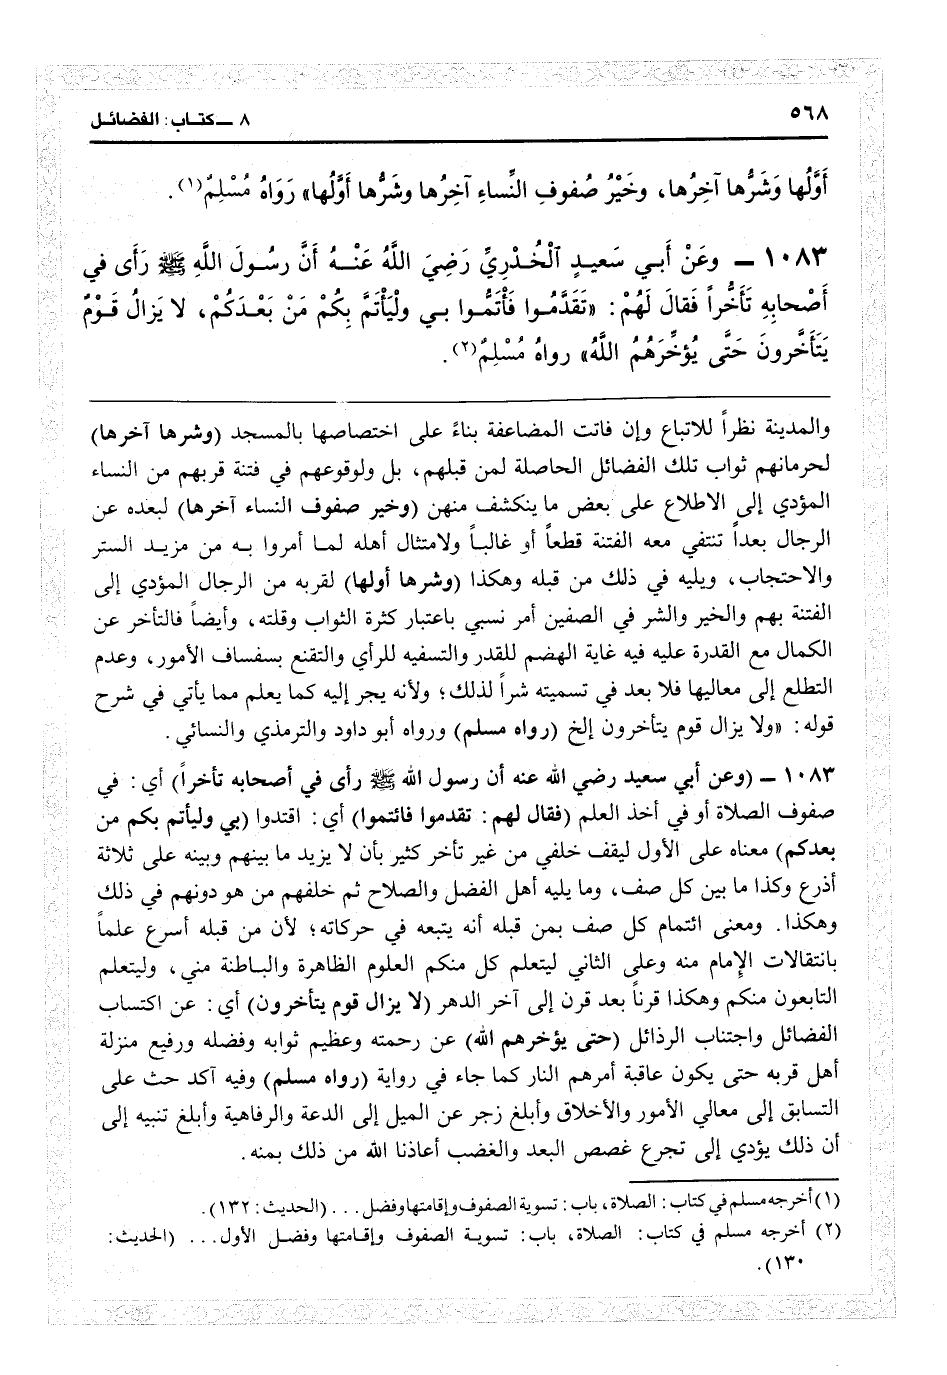 ٥٦٨
٨ ـ كتاب: الفضائل
أَوَّلُها وَشَرُّها آخِرُها، وخَيْرُ صُفوفِ النِّساءِ آخِرُها وشَرُّها أَوَّلُها» رَوَاهُ مُسْلِمٌ(١).
١٠٨٣ ـ وعَنْ أَبي سَعيدٍ ٱلْخُدْرِيِّ رَضِيَ اللَّهُ عَنْهُ أَنَّ رسُولَ اللَّهِ ﷺ رَأى في
أَصْحابِهِ تَأَخُّراً فَقالَ لَهُمْ: «تَقَدَّمُوا فَأْتَمُّوا بي ولْيَأْتَمَّ بِكُمْ مَنْ بَعْدَكُمْ، لا يَزالُ قَوْمٌ
يَتَأَخَّرونَ حَتَّى يُؤخِّرَهُمُ اللَّهُ» رواهُ مُسْلِمٌ(٢).
والمدينة نظراً للاتباع وإن فاتت المضاعفة بناءً على اختصاصها بالمسجد (وشرها آخرها)
لحرمانهم ثواب تلك الفضائل الحاصلة لمن قبلهم، بل ولوقوعهم في فتنة قربهم من النساء
المؤدي إلى الاطلاع على بعض ما ينكشف منهن (وخير صفوف النساء آخرها) لبعده عن
الرجال بعداً تنتفي معه الفتنة قطعاً أو غالباً ولامتثال أهله لما أمروا به من مزيد الستر
والاحتجاب، ويليه في ذلك من قبله وهكذا (وشرها أولها) لقربه من الرجال المؤدي إلى
الفتنة بهم والخير والشر في الصفين أمر نسبي باعتبار كثرة الثواب وقلته، وأيضاً فالتأخر عن
الكمال مع القدرة عليه فيه غاية الهضم للقدر والتسفيه للرأي والتقنع بسفساف الأمور، وعدم
التطلع إلى معاليها فلا بعد في تسميته شراً لذلك؛ ولأنه يجر إليه كما يعلم مما يأتي في شرح
قوله: «ولا يزال قوم يتأخرون إلخ (رواه مسلم) ورواه أبو داود والترمذي والنسائي.
١٠٨٣ ـ (وعن أبي سعيد رضي الله عنه أن رسول الله ﷺ رأى في أصحابه تأخراً) أي: في
صفوف الصلاة أو في أخذ العلم (فقال لهم: تقدموا فائتموا) أي: اقتدوا (بي وليأتم بكم من
بعدكم) معناه على الأول ليقف خلفي من غير تأخر كثير بأن لا يزيد ما بينهم وبينه على ثلاثة
أذرع وكذا ما بين كل صف، وما يليه أهل الفضل والصلاح ثم خلفهم من هو دونهم في ذلك
وهكذا. ومعنى ائتمام كل صف بمن قبله أنه يتبعه في حركاته؛ لأن من قبله أسرع علماً
بانتقالات الإمام منه وعلى الثاني ليتعلم كل منكم العلوم الظاهرة والباطنة مني، وليتعلم
التابعون منكم وهكذا قرناً بعد قرن إلى آخر الدهر (لا يزال قوم يتأخرون) أي: عن اكتساب
الفضائل واجتناب الرذائل (حتى يؤخرهم الله) عن رحمته وعظيم ثوابه وفضله ورفيع منزلة
أهل قربه حتى يكون عاقبة أمرهم النار كما جاء في رواية (رواه مسلم) وفيه آكد حث على
التسابق إلى معالي الأمور والأخلاق وأبلغ زجر عن الميل إلى الدعة والرفاهية وأبلغ تنبيه إلى
أن ذلك يؤدي إلى تجرع غصص البعد والغضب أعاذنا الله من ذلك بمنه.
(١) أخرجه مسلم في كتاب: الصلاة، باب: تسوية الصفوف وإقامتها وفضل... (الحديث: ١٣٢).
(٢) أخرجه مسلم في كتاب: الصلاة، باب: تسوية الصفوف وإقامتها وفضل الأول... (الحديث:
١٣٠).